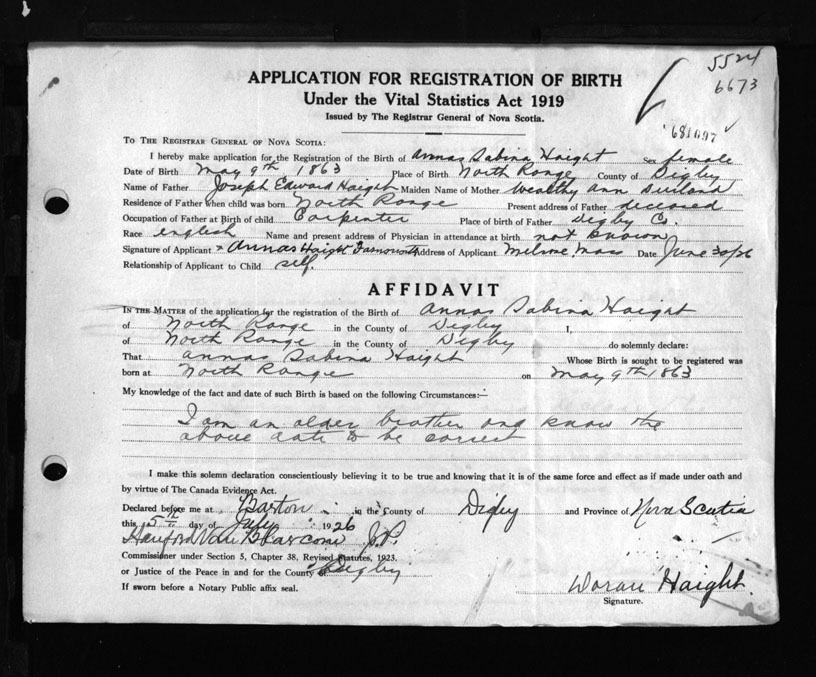 5524
6673
681697
APPLICATION FOR REGISTRATION OF BIRTH
Under the Vital Statistics Act 1919
Issued by The Registrar General of Nova Scotia.
TO THE REGISTRAR GENERAL OF NOVA SCOTIA:
I hereby make application for the Registration of the Birth of Annas Sabina Haight Sex female
Date of Birth May 9th 1863 Place of Birth North Range County of Digby
Name of Father Joseph Edward Haight Maiden Name of Mother Wealthy Ann
Residence of Father when child was born North Range Present address of Father deceased
Occupation of Father at Birth of child Carpenter Place of birth of Father Digby Co.
Race english Name and present address of Physician in attendance at birth not known
Signature of Applicant Annas Haight Address of Applicant Mass Date June 30/26
Relationship of Applicant to Child self.
AFFIDAVIT
IN THE MATTER of the application for the registration of the Birth of Annas Sabina Haight
of North Range in the County of Digby I,
of North Range in the County of Digby do solemnly declare:
That Annas Sabina Haight Whose Birth is sought to be registered was
born at North Range on May 9th 1863
My knowledge of the fact and date of such Birth is based on the following Circumstances:—
I am an older brother and know the
above date to be correct
I make this solemn declaration conscientiously believing it to be true and knowing that it is of the same force and effect as if made under oath and
by virtue of The Canada Evidence Act.
Declared before me at Barton in the County of Digby and Province of Nova Scotia
this 5th day of July 1926
J.P.
Commissioner under Section 5, Chapter 38, Revised Statutes, 1923.
or Justice of the Peace in and for the County of Digby
If sworn before a Notary Public affix seal.
Haight
Signature.